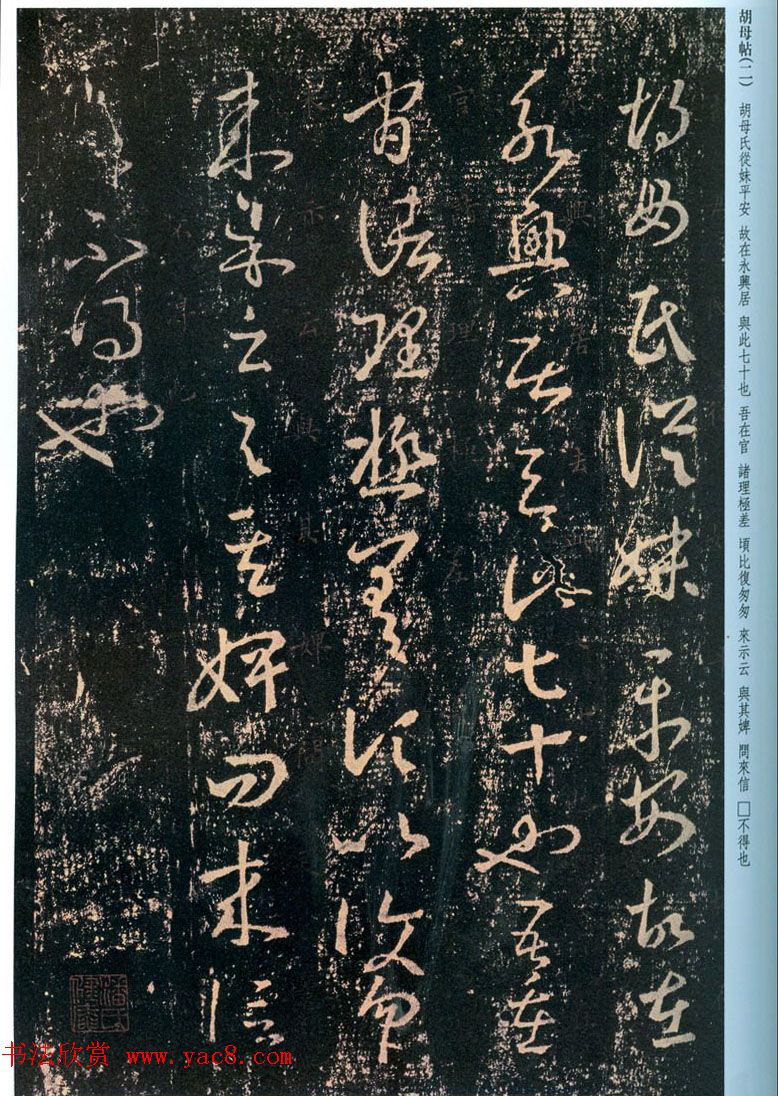 胡母帖(二) 胡母氏從妹平安 故在永興居 與此七十也 吾在官 諸理極差 頃比復匆匆 來示云 與其婢 問來信 □不得也
胡母氏從妹平安故在
永興居去此七十也吾在
官諸理極差頃比復匆
來示云與其婢問來信
不得也
书法欣赏 www.yac8.com